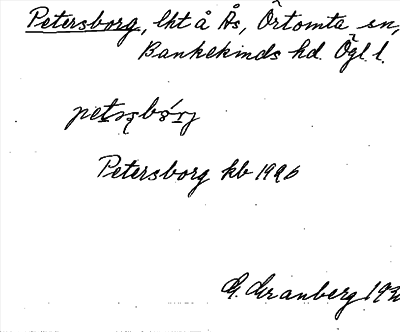 Petersborg, lht å Ås, Örtomta sn,
Bankekinds hd. Ögl. l.
Petersborg kb
G. Granberg